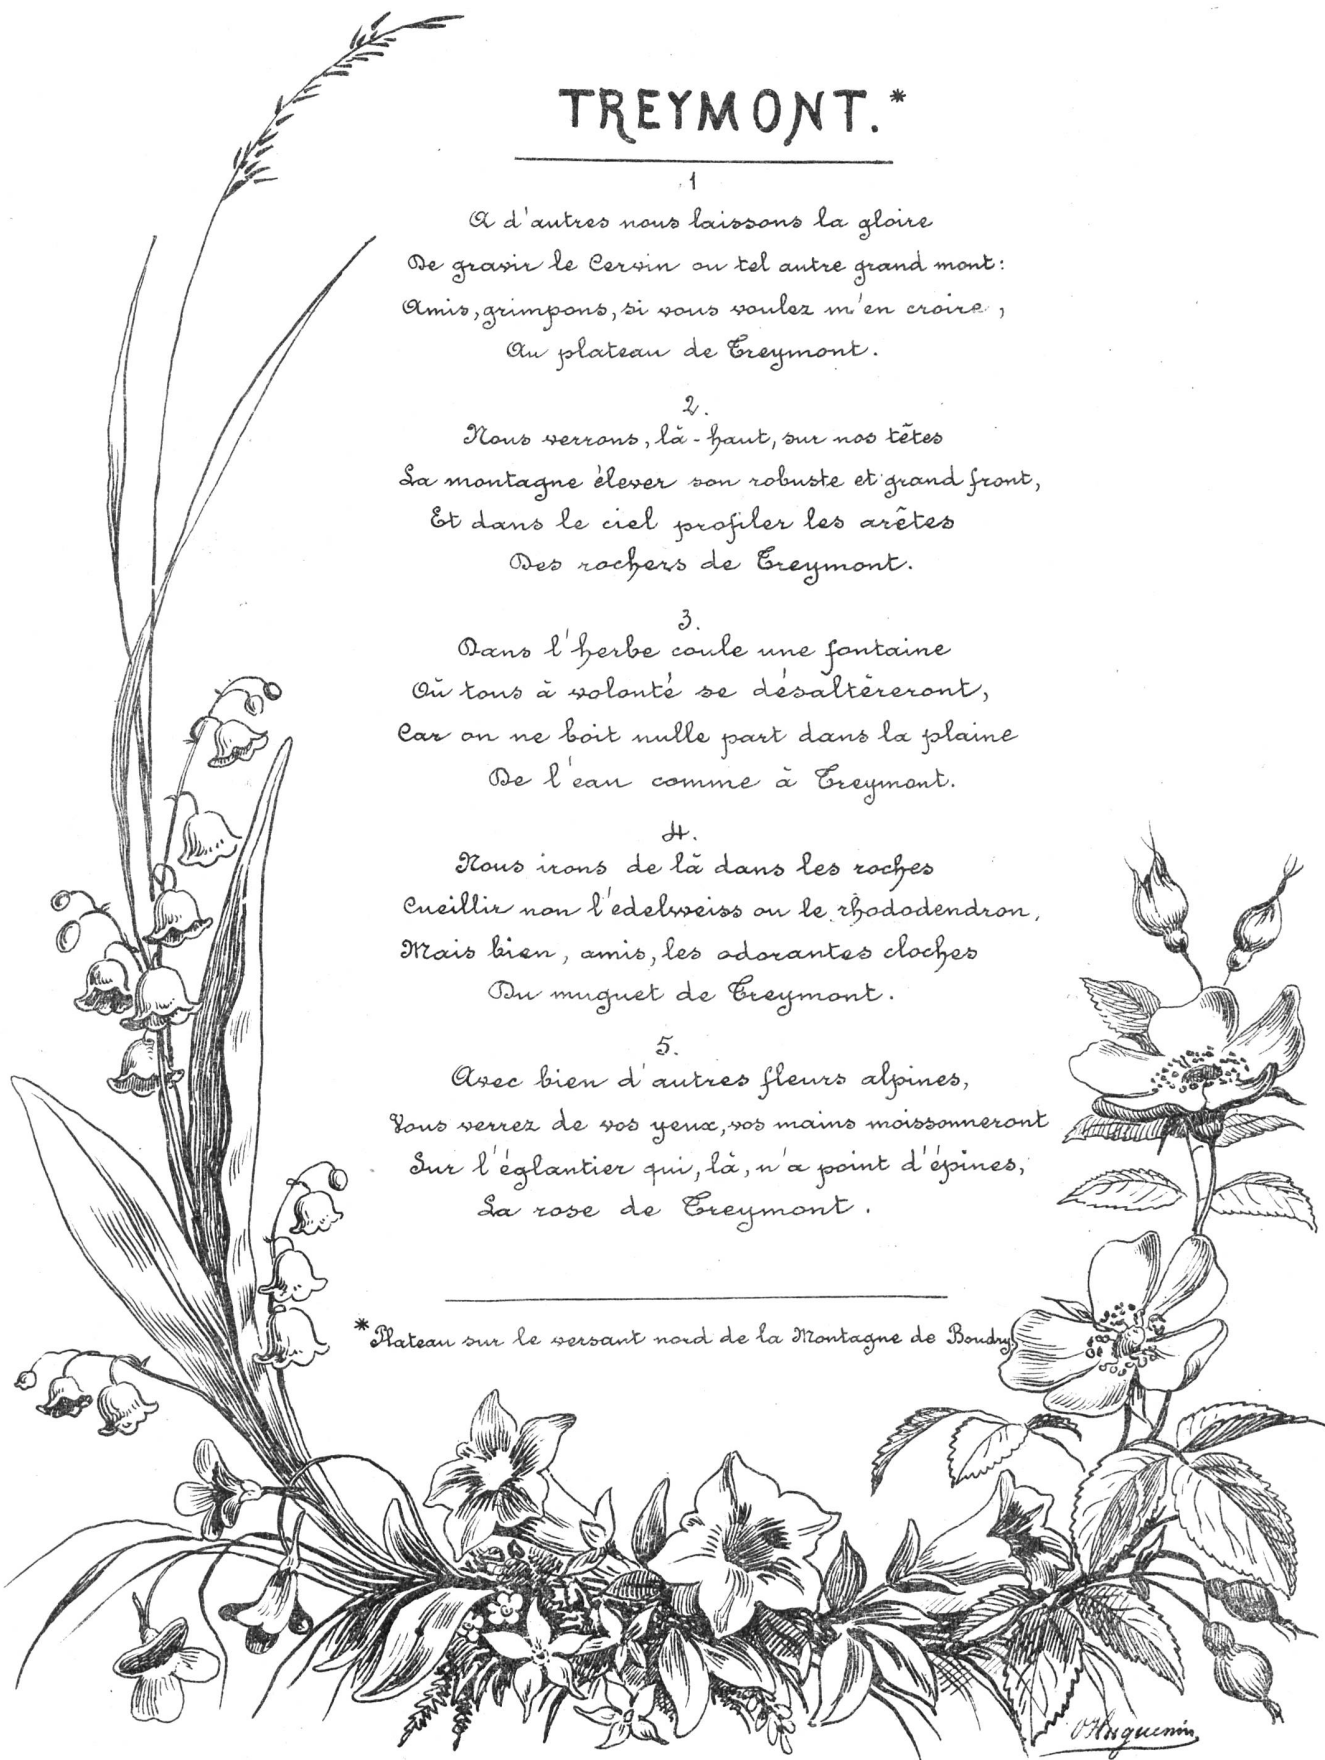 TREYMONT.*
1
A d'autres nous laissons la gloire
De gravir le Cervin ou tel autre grand mont:
Amis, grimpons, si vous voulez m'en croire,
Au plateau de Treymont.
2.
Nous verrons, là-haut, sur nos têtes
La montagne élever son robuste et grand front,
Et dans le ciel profiler les arêtes
Des rochers de Treymont.
3.
Dans l'herbe coule une fontaine
Où tous à volonté se désaltèreront,
Car on ne boit nulle part dans la plaine
De l'eau comme à Treymont.
4.
Nous irons de là dans les roches
Cueillir non l'edelweiss ou le rhododendron,
Mais bien, amis, les odorantes cloches
Du muguet de Treymont.
5.
Avec bien d'autres fleurs alpines,
Vous verrez de vos yeux, vos mains moissonneront
Sur l'églantier qui, là, n'a point d'épines,
La rose de Treymont.
*Plateau sur le versant nord de la Montagne de Boudry
O Huguenin